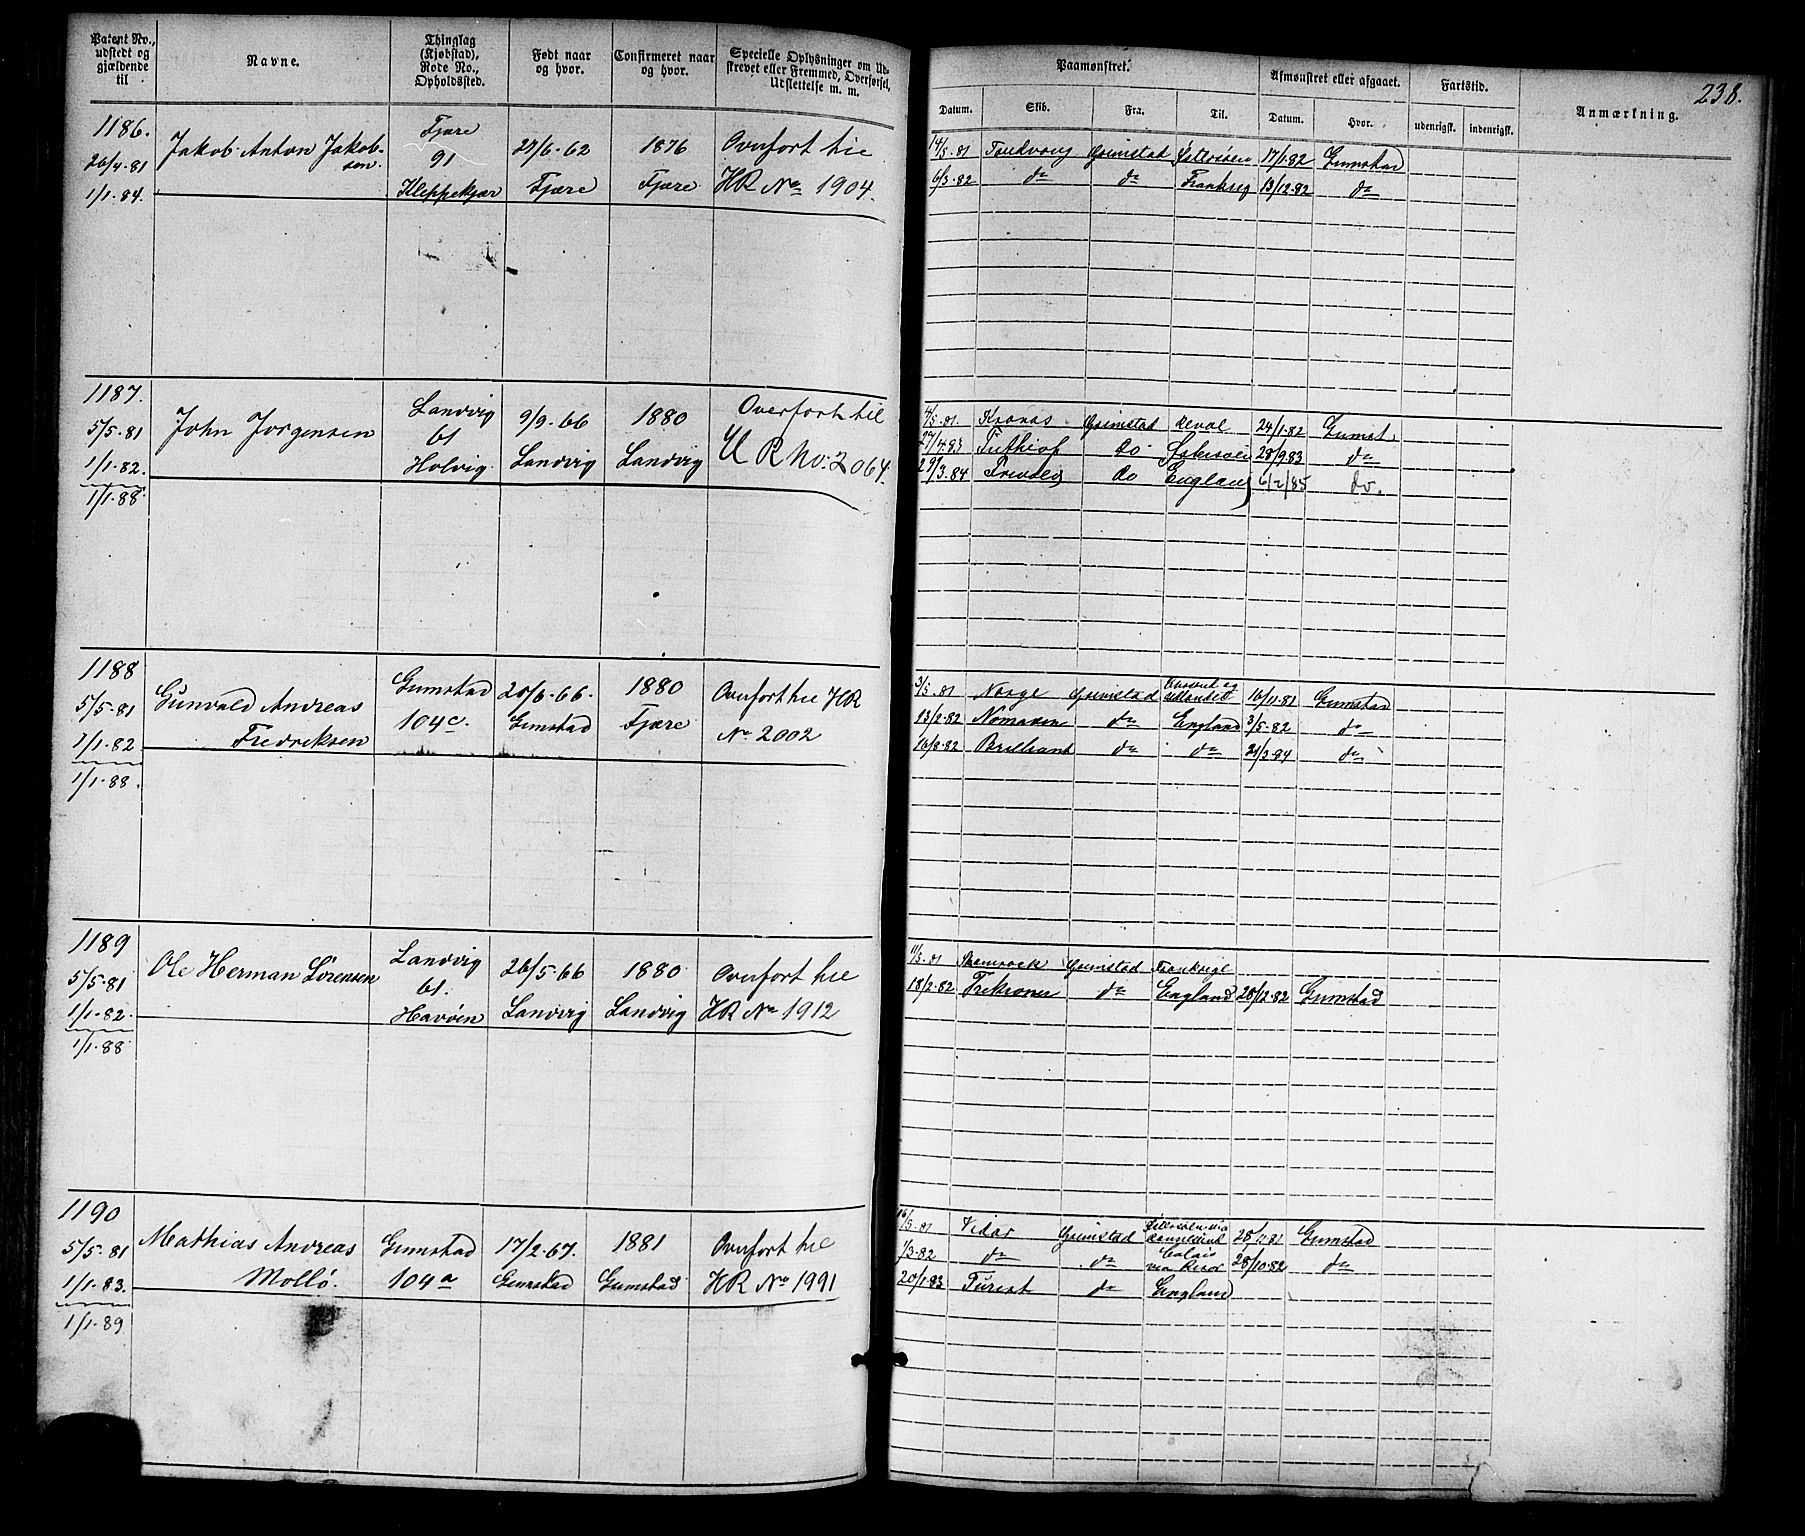 238.
Patent No., udstedt og gjældende til
Navne.
Thinglag (Kjøbstad), Rode No., Opholdssted.
Født naar og hvor.
Confirmeret naar og hvor.
Specielle Oplysninger om Udskrevet eller Fremmed, Overførsel, Udslettelse m. m.
Paamønstret.
Afmønstret eller afgaaet.
Fartstid.
Anmærkning.
Datum. Skib. Fra. Til. Datum. Hvor. udenrigsk. indenrigsk.
1186. Fjære 29/6-62 1876 Overført til
26/4-81 Jakob Anton Jakobsen 91
1/1-84. Kleppekjær Fjære Fjære HR No 1904.
14/5-81 Grimstad Østersøen 17/1-82 Grimstad
6/3-82 do do Frankrig 13/12-82 do
1187. Landvig 9/9-66 1880 Overført til
5/5-81 John Jørgensen 61
1/1-82. Holvig. Landvig Landvig U R No. 2064.
1/1-88.
4/5-81. Grimstad Reval 24/1-82 Grimst
27/4-83 do Østersøen 28/9-83 do
29/3-84 do England 6/2/85 do.
1188 Grimstad 1880 Overført til HR
5/5-81 Gunvald Andreas 104c. Grimstad Fjære No 2002
1/1-82 Fredriksen
1/1-88.
3/5-81 Norge Grimstad 16/11-81 Grimstad
13/2-82 Nomaden do England 3/5-82 do
16/8-82 Brilliant do do 21/3-84 do
1189 Landvig 26/5-66 1880 Overført til
5/5-81 Ole Herman Sörensen 61.
1/1-82. Havöen Landvig Landvig HR No 1912
1/1-88
11/5-81 Grimstad Frankrige
18/2-82 Trekroner do England 28/12-82 Grimstad
1190 Grimstad 17/2-67. 1881 Overført til
5/5-81 Mathias Andreas
1/1-83. Mollö. 104a Grimstad Grimstad HR No 1991
1/1-89
16/5-81 Vidar Grimstad 28/11-81 Grimstad
1/3-82 do do Calais via Risør 28/10-82 do
20/1-83 Turist do England